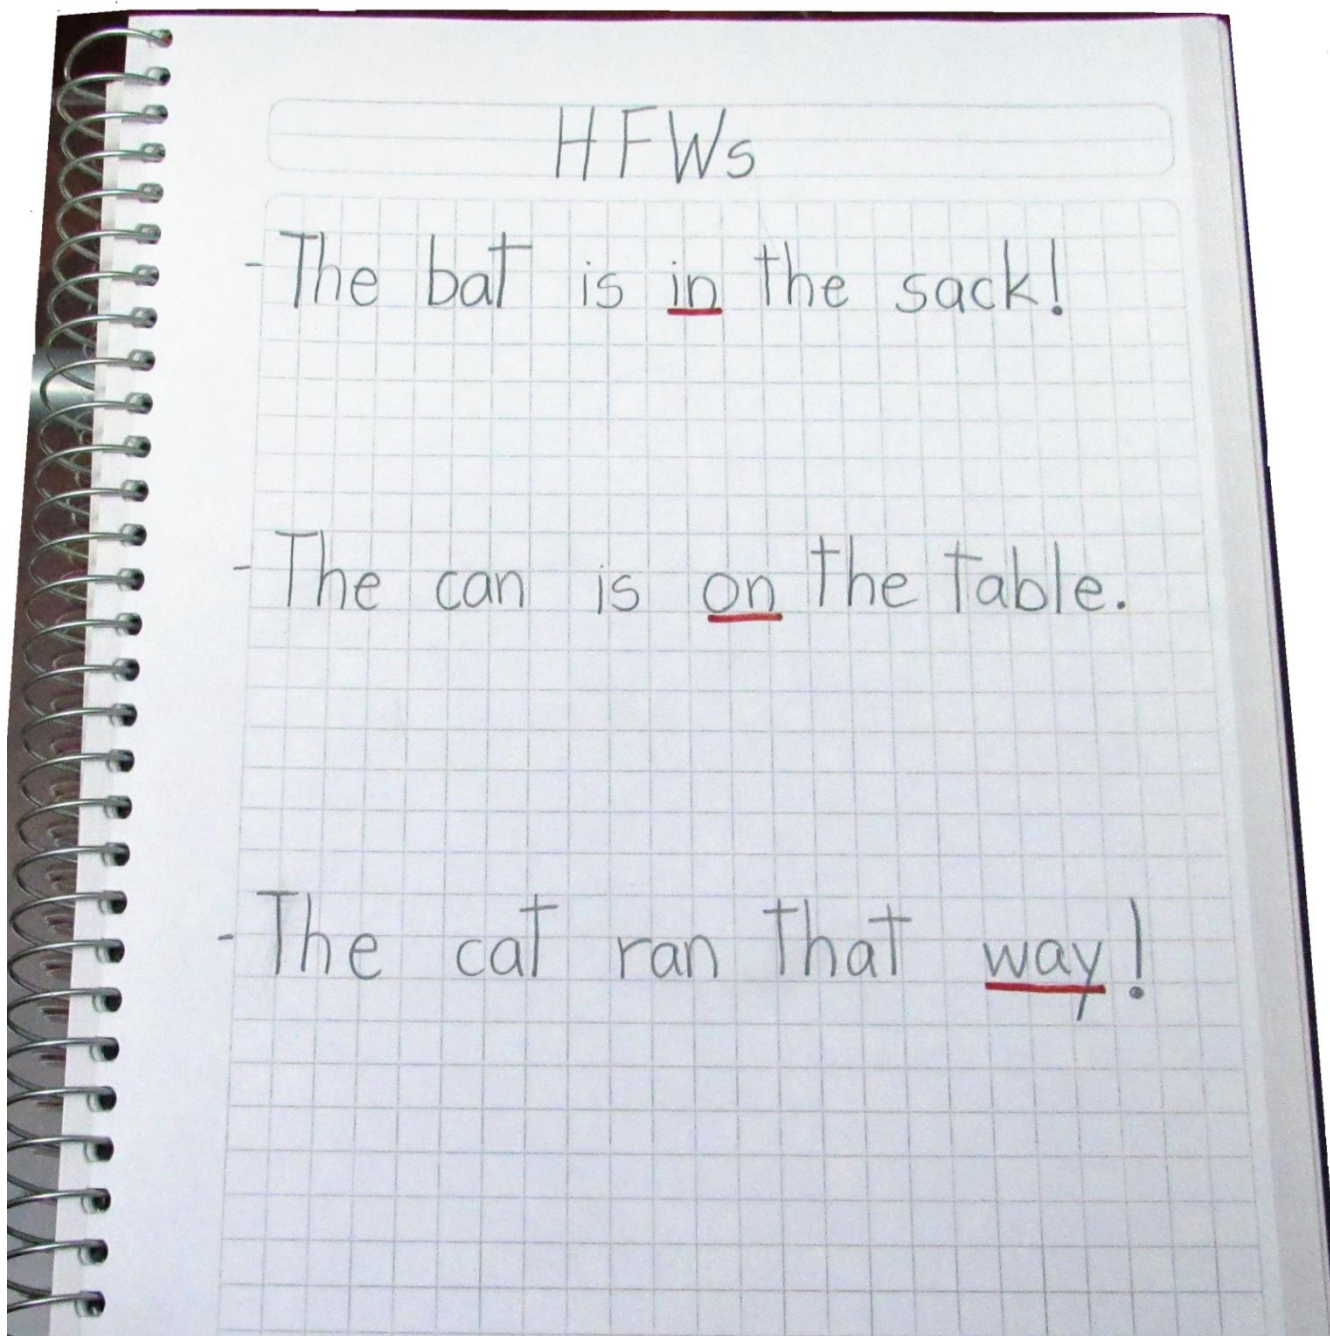 HFWs
- The bat is in the sack!
- The can is on the table.
- The cat ran that way!